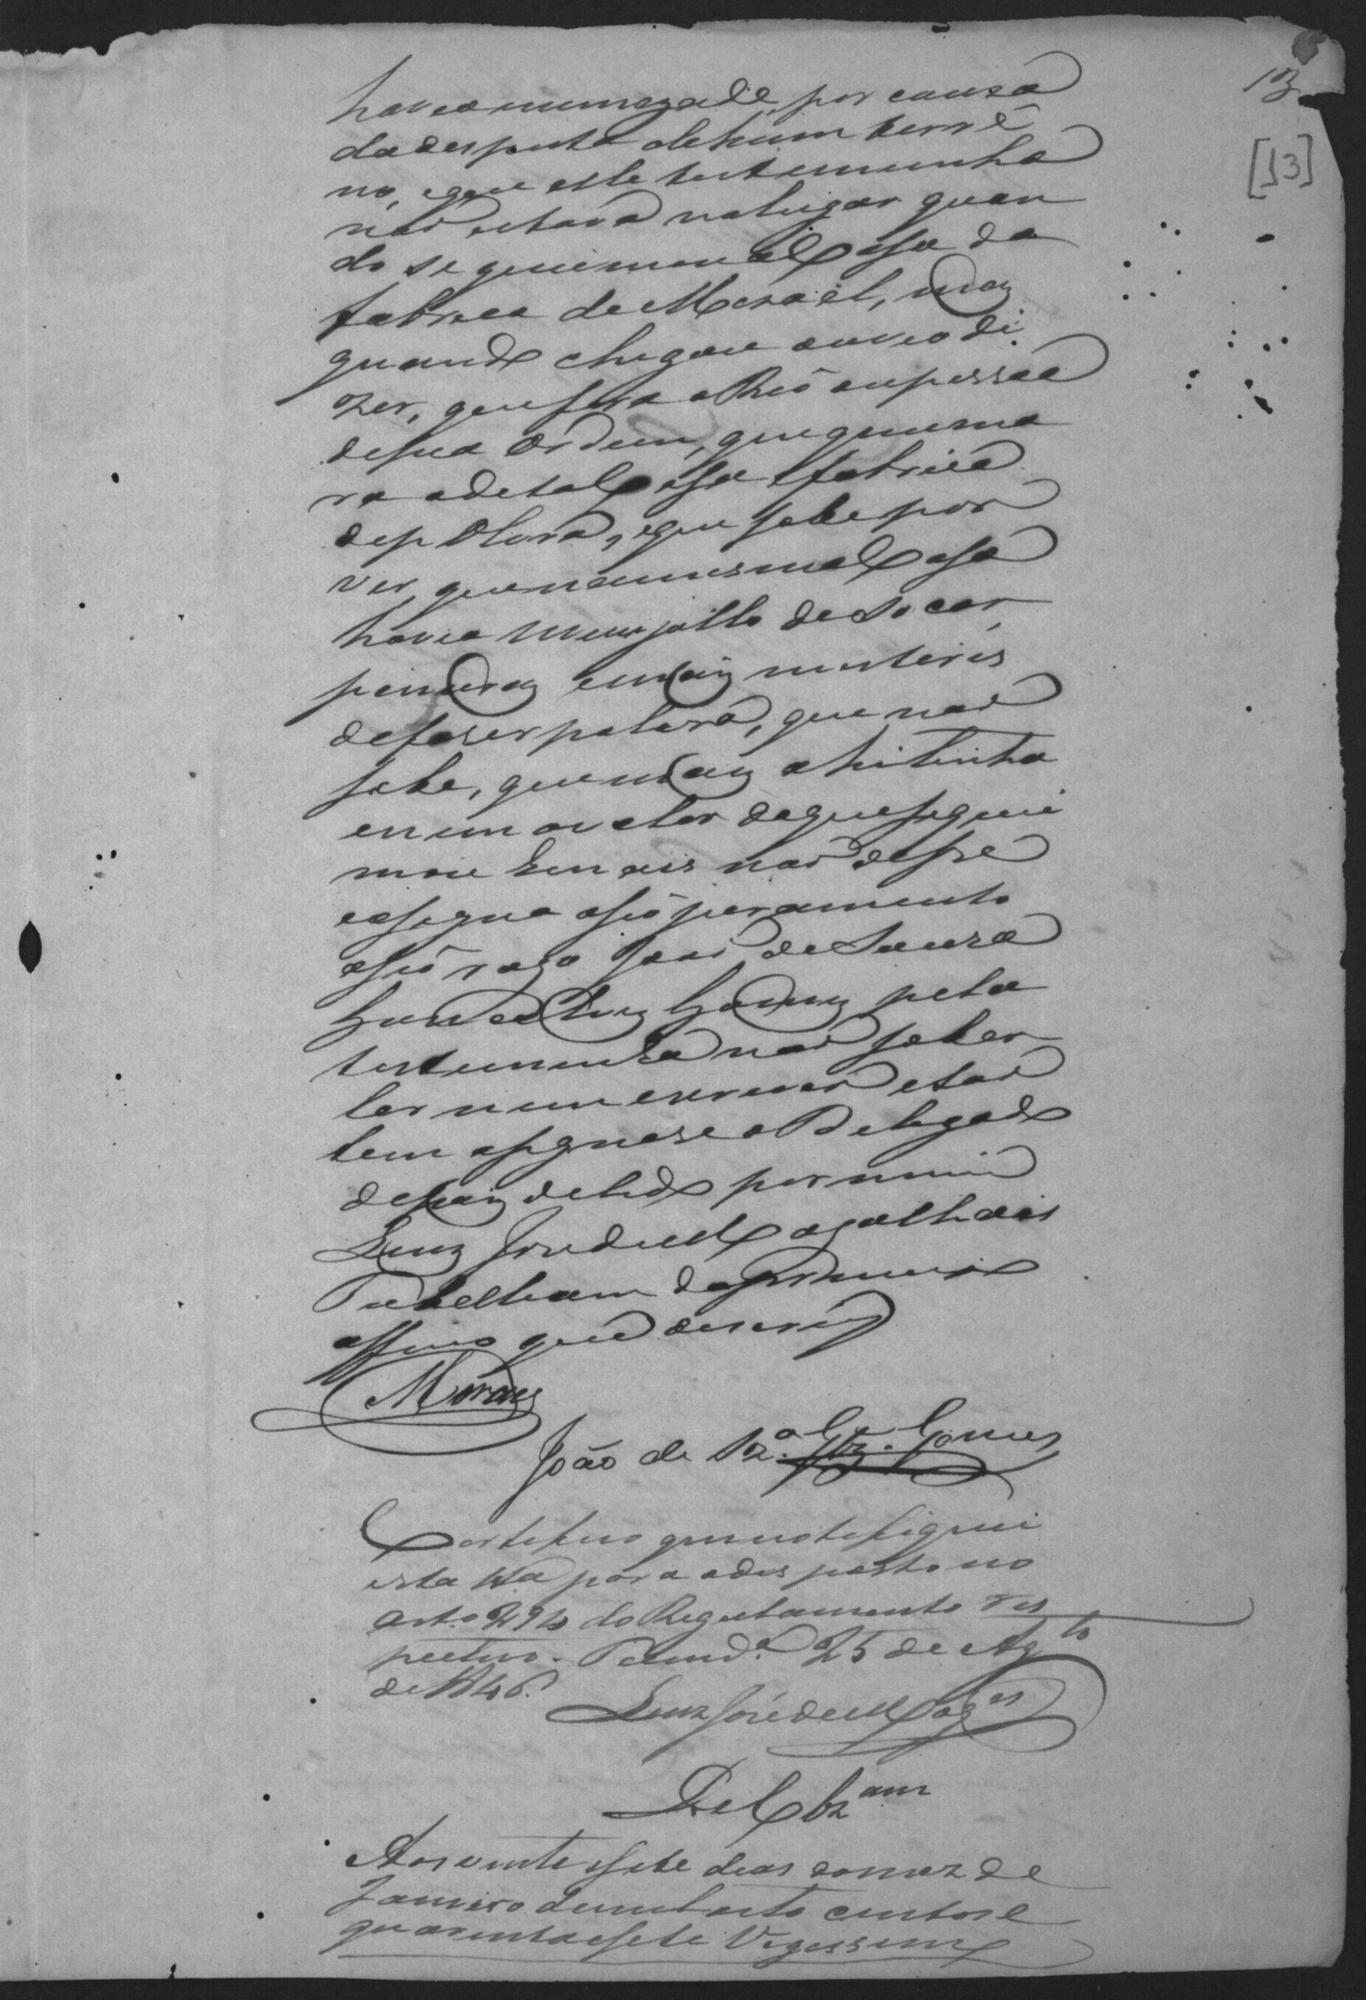 13
[13]
havea inimizade, por causa
da desputa de hum terre
no, e que elle testemunha
não estava no lugar quan
do se queimou a Casa da
fabrica de Mizael, mas
quando chegou ouvio di
zer, que fora o Reo ou pessoa
de sua ordem, que queima
ra a de tal Casa e fabrica
de polvora, e que sabe por
ver que na mesma Casa
havia Munjollo de Socar,
peneiras e mais misteres
de fazer polvora, que não
sabe, que mais ahi tinha
e nem o valor do que se quei
mou E mais não disse
e assigna o seo juramento
a seo rogo João de Souza
Gonçalves Gomes pela
testemunha não saber
ler nem escrever e tão
bem assignase o Delegado
depois de lido por mim
Luiz Jose de Magalhães
Tabelliam do primeiro
officio que o escrevy
Moraes
João de Sza. Glz. Gomes
Certefico que notefiquei
esta ta para o desposto no
arto. 294 do Regulamento res
pectivo. Pamda. 25 de Agto
de 1846.
Luiz José de Mages
Del Cbzam
Aos vinte e sete dias do mez de
Janeiro de mil oito centos e
quarenta e sete Vigessimo